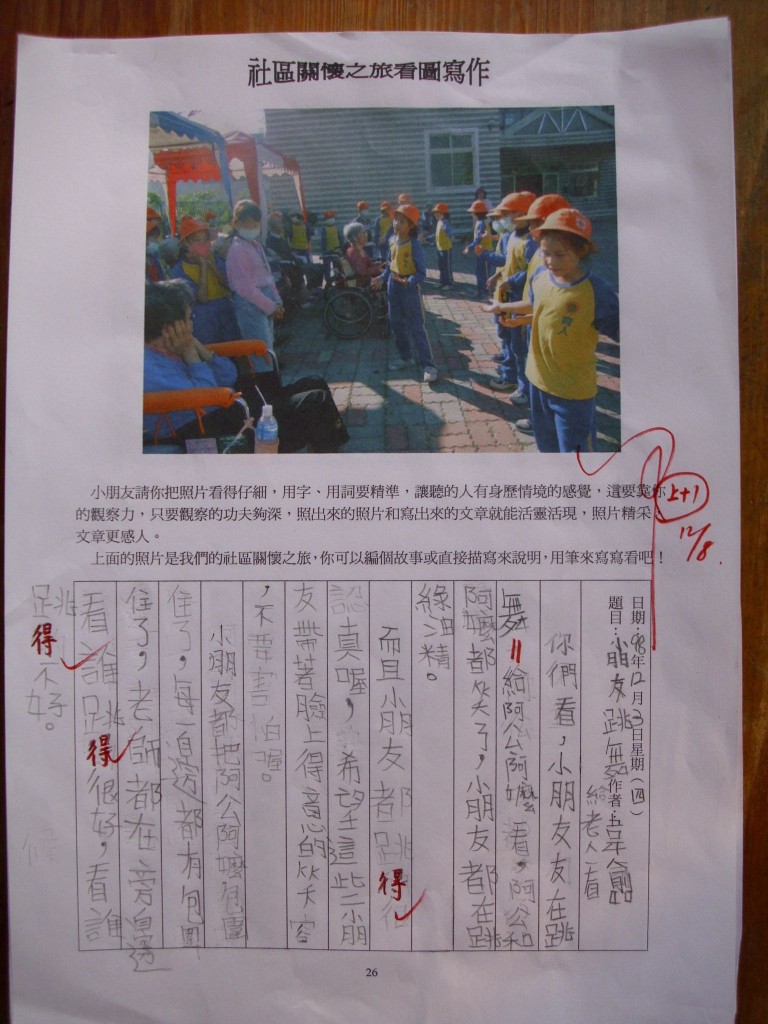 社區關懷之旅看圖寫作
小朋友請你把照片看得仔細，用字、用詞要精準，讓聽的人有身歷情境的感覺，這要靠你
的觀察力，只要觀察的功夫夠深，照出來的照片和寫出來的文章就能活靈活現，照片精采，
文章更感人。
上面的照片是我們的社區關懷之旅，你可以編個故事或直接描寫來說明，用筆來寫寫看吧！
上+1
12/8.
日期：98年12月3日星期（四）
題目：小朋友跳舞給老人看 作者：五年
你們看，小朋友友在跳
舞=給阿公阿嬤看，阿公和
阿嬤都笑了，小朋友都在跳
綠油精。
而且小朋友都跳得
認真喔，希望這些小朋
友帶著臉上得意的笑容
，不要害怕喔。
小朋友都把阿公阿嬤包圍
住了，每一邊都有包圍
住了，老師都在旁邊
看誰跳得很好，看誰
跳得不好。
26